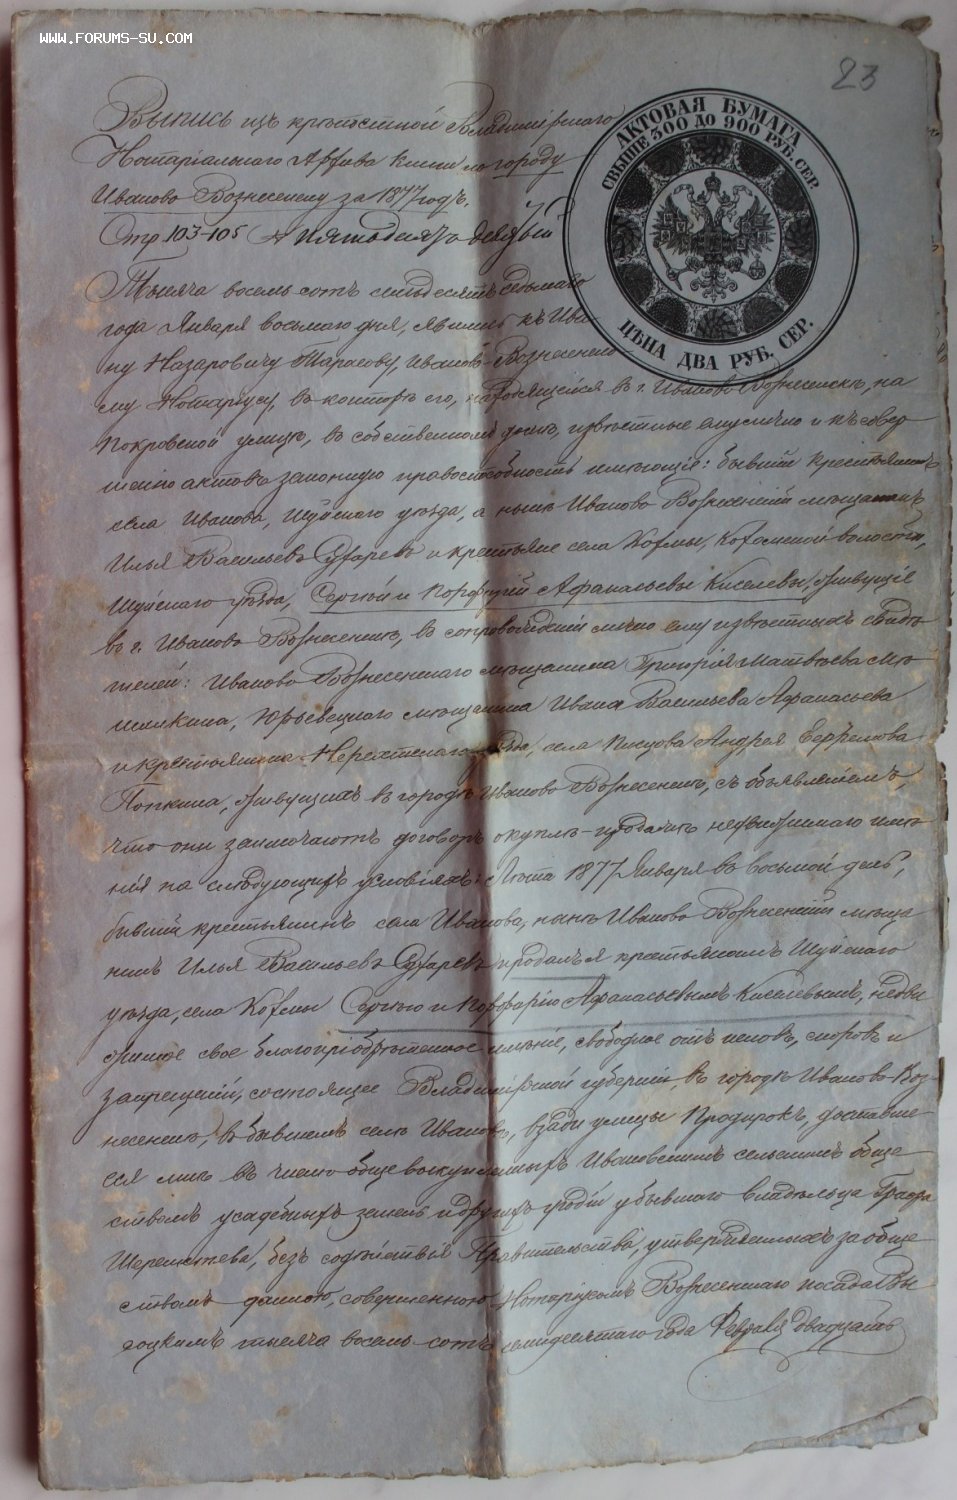 WWW.FORUMS-SU.COM
23
АКТОВАЯ БУМАГА
СВЫШЕ 300 ДО 900 РУБ. СЕР.
ЦѢНА ДВА РУБ. СЕР.
Выпись изъ крѣпостной Владимірскаго
Нотаріальнаго Архива книги по городу
Иваново Вознесенску за 1877 годъ.
Стр 103-105 №
Тысяча восемь сотъ семьдесятъ седьмаго
года Января восьмаго дня, явились къ Ива-
ну Назаровичу Тарасову, Иваново-Вознесенско
му Нотаріусу, въ контору его, находящуюся въ г. Иваново Вознесенскѣ, на
Покровской улицѣ, въ собственномъ домѣ, извѣстные ему лично и къ совер
шенію актовъ законную правоспособность имѣющіе: бывшій крестьянинъ
села Иванова, Шуйскаго уѣзда, а нынѣ Иваново Вознесенскій мѣщанинъ
Илья Васильевъ Сухаревъ и крестьяне села Кохмы, Кохомской волости,
Шуйскаго уѣзда, Сергѣй и Порфирій Афанасьевы Киселевы, живущіе
въ г. Иваново Вознесенскѣ, въ сопровожденіи лично ему извѣстныхъ свидѣ
телей: Иваново Вознесенскаго мѣщанина Григорія Матвѣева
Юрьевецкаго мѣщанина Ивана Васильева Афанасьева
и крестьянина Нерехтскаго уѣзда, села Писцова Андрея Ефремова
живущихъ въ городѣ Иваново Вознесенскѣ, съ объявленіемъ,
что они заключаютъ договоръ о куплѣ-продажѣ недвижимаго имѣ
нія на слѣдующихъ условіяхъ: Лѣта 1877 Января въ восьмой день,
бывшій крестьянинъ села Иванова, нынѣ Иваново Вознесенскій мѣща
нинъ Илья Васильевъ Сухаревъ продалъ я крестьянамъ Шуйскаго
уѣзда, села Кохмы Сергѣю и Порфирію Афанасьевымъ Киселевымъ, недви
жимое свое благопріобрѣтенное имѣніе, свободное отъ исковъ, споровъ и
запрещеній, состоящее Владимірской губерніи, въ городѣ Иваново-Воз-
несенскѣ, въ бывшемъ селѣ Ивановѣ, взади улицы доставше
еся мнѣ въ число общевыкупленныхъ Ивановскимъ сельскимъ обще
ствомъ усадебныхъ земель и другихъ угодій у бывшаго владѣльца Графа
Шереметева, безъ содѣйствія Правительства, утвержденныхъ за обще
ствомъ данною, совершенною Нотаріусомъ Вознесенскаго посада
тысяча восемь сотъ семидесятаго года Февраля двадцать